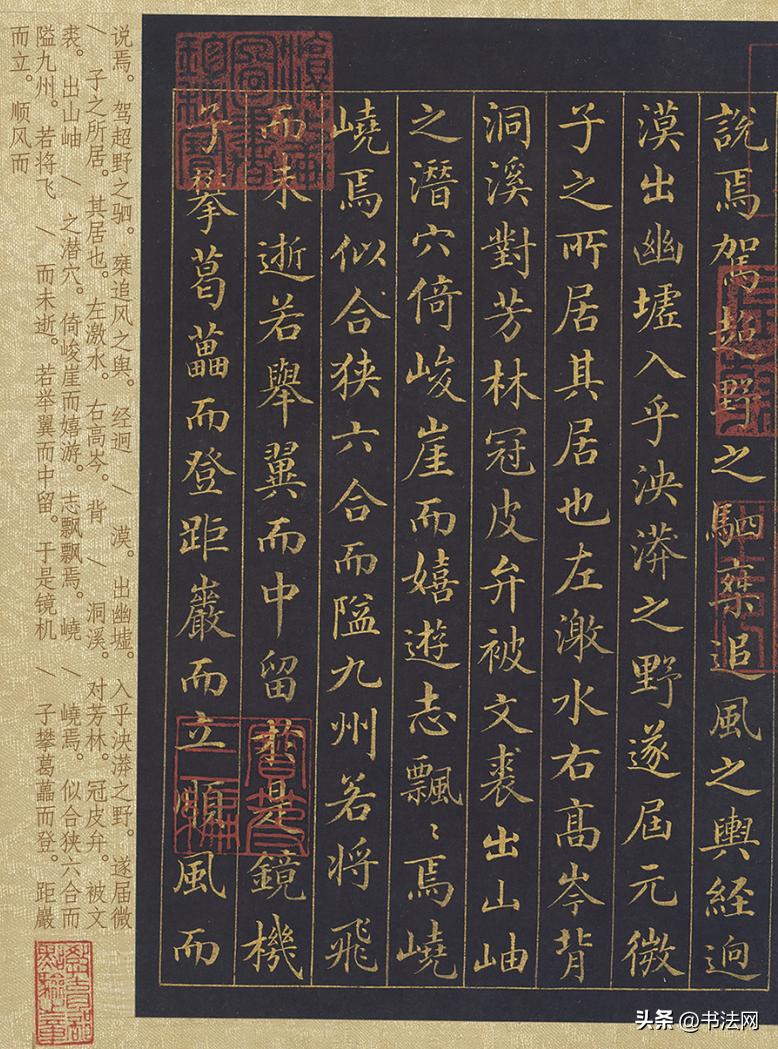 說焉駕超野之駟椉追風之輿經逈
漠出幽墟入乎泱漭之野遂屆元微
子之所居其居也左激水右高岑背
洞溪對芳林冠皮弁被文裘出山岫
之潛穴倚峻崖而嬉遊志飄〻焉嶢
嶢焉似合狭六合而隘九州若将飛
而未逝若舉翼而中留於是鏡機
子攀葛藟而登距巖而立順風而
说焉。驾超野之驷。椉追风之舆。经迥/漠。出幽墟。入乎泱漭之野。遂届微
/子之所居。其居也。左激水。右高岑。背/洞溪。对芳林。冠皮弁。被文
裘。出山岫/之潜穴。倚峻崖而嬉游。志飘飘焉。嶢/嶢焉。似合狭六合而
隘九州。若将飞/而未逝。若举翼而中留。于是镜机/子攀葛藟而登。距巖
而立。顺风而
头条 @书法网